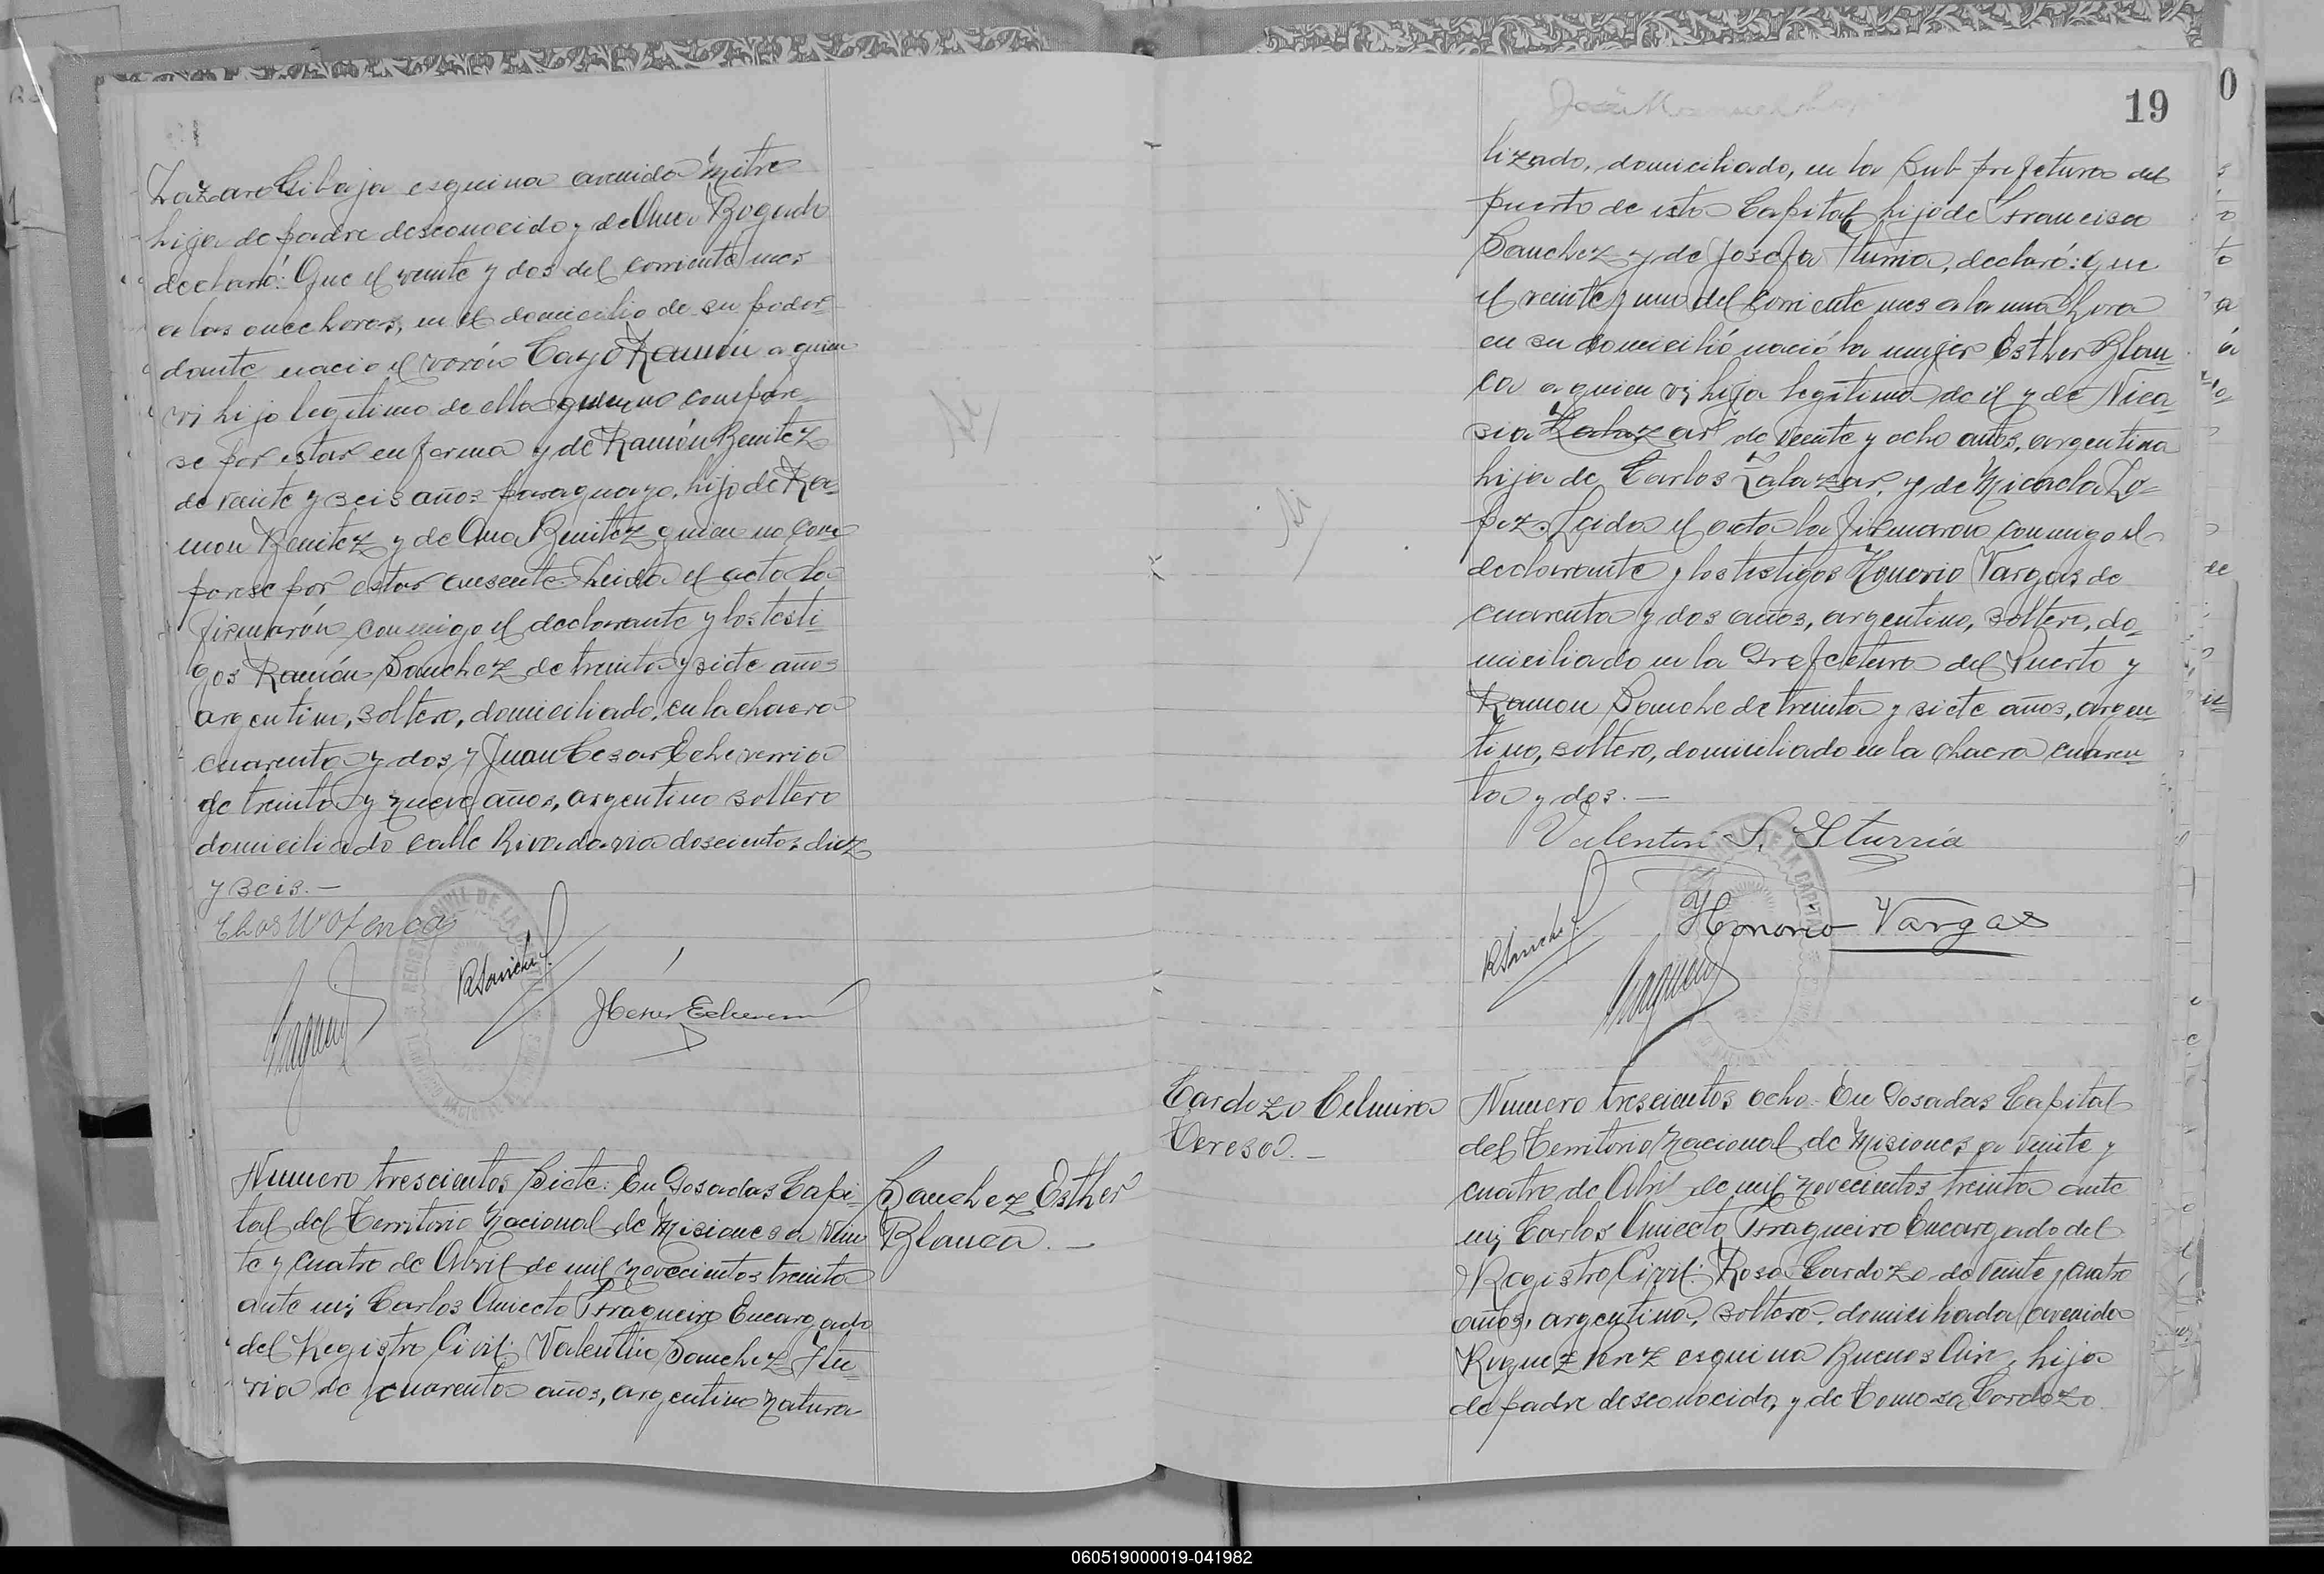 Lazaro Gibaja esquina avenida Mitre
hija de padre desconocido y de Ana Bogado
declaró: Que el veinte y dos del corriente mes
a las once horas, en el domicilio de su poder-
dante nacio el varón Cayo Ramón a quien
vi hijo legitimo de ella quien no compare-
se por estar enferma y de Ramón Benitez
de veinte y seis años paraguayo, hijo de Ra-
mon Benitez y de Ana Benitez quien no com
parese por estar ausente. Leida el acta la
firmarón conmigo el declarante y los testi-
gos Ramón Sanchez de treinta y siete años
argentino, soltero, domiciliado, en la chacra
cuarenta y dos y Juan Cesar Echeverria
de treinta y nueve años, argentino soltero
domiciliado calle Rivadavia doscientos diez
y seis.—
R Sanchez
Numero trescientos siete: En Posadas Capi-
tal del Territorio Nacional de Misiones a vein
te y cuatro de Abril de mil novecientos treinta
ante mi; Carlos Aniceto Fraqueiro Encargado
del Registro Civil: Valentin Sanchez Itu-
rria de cuarenta años, argentino natura
Sanchez Esther
Blanca.—
19
lizado, domiciliado, en la Sub prefetura del
puerto de esta Capital hijo de Francisco
Sanchez y de Josefa Iturria, declaró: Que
el veinte y uno del corriente mes a la una hora
en su domicilió nació la mujer Esther Blan-
ca a quien vi hija legitima de él y de Nica-
sia Zalazar de veinte y ocho años, argentina
hija de Carlos Zalazar, y de Micaela Lo-
pez. Leida el acta la firmaron conmigo el
declarante y los testigos Honorio Vargas de
cuarenta y dos años, argentino, soltero, do-
miciliado en la Prefectura del Puerto y
Ramon Sanche de treinta y siete años, argen-
tino, soltero, domiciliado en la chacra cuaren-
ta y dos.—
Valentin S. Iturria
R Sanchez
Honorio Vargas
Cardozo Celmira
Teresa.—
Numero trescientos ocho: En Posadas Capital
del Territorio Nacional de Misiones a veinte y
cuatro de Abril de mil novecientos treinta ante
mi; Carlos Aniceto Fraqueiro Encargado del
Registro Civil: Rosa Cardozo de veinte y cuatro
años, argentina, soltera, domiciliada avenida
Roque Perez esquina Buenos Aire, hija
de padre desconocido, y de Tomasa Cardozo
060519000019-041982